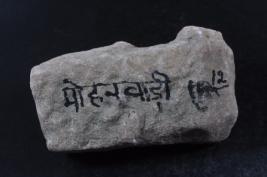 मोहनवाडी 12